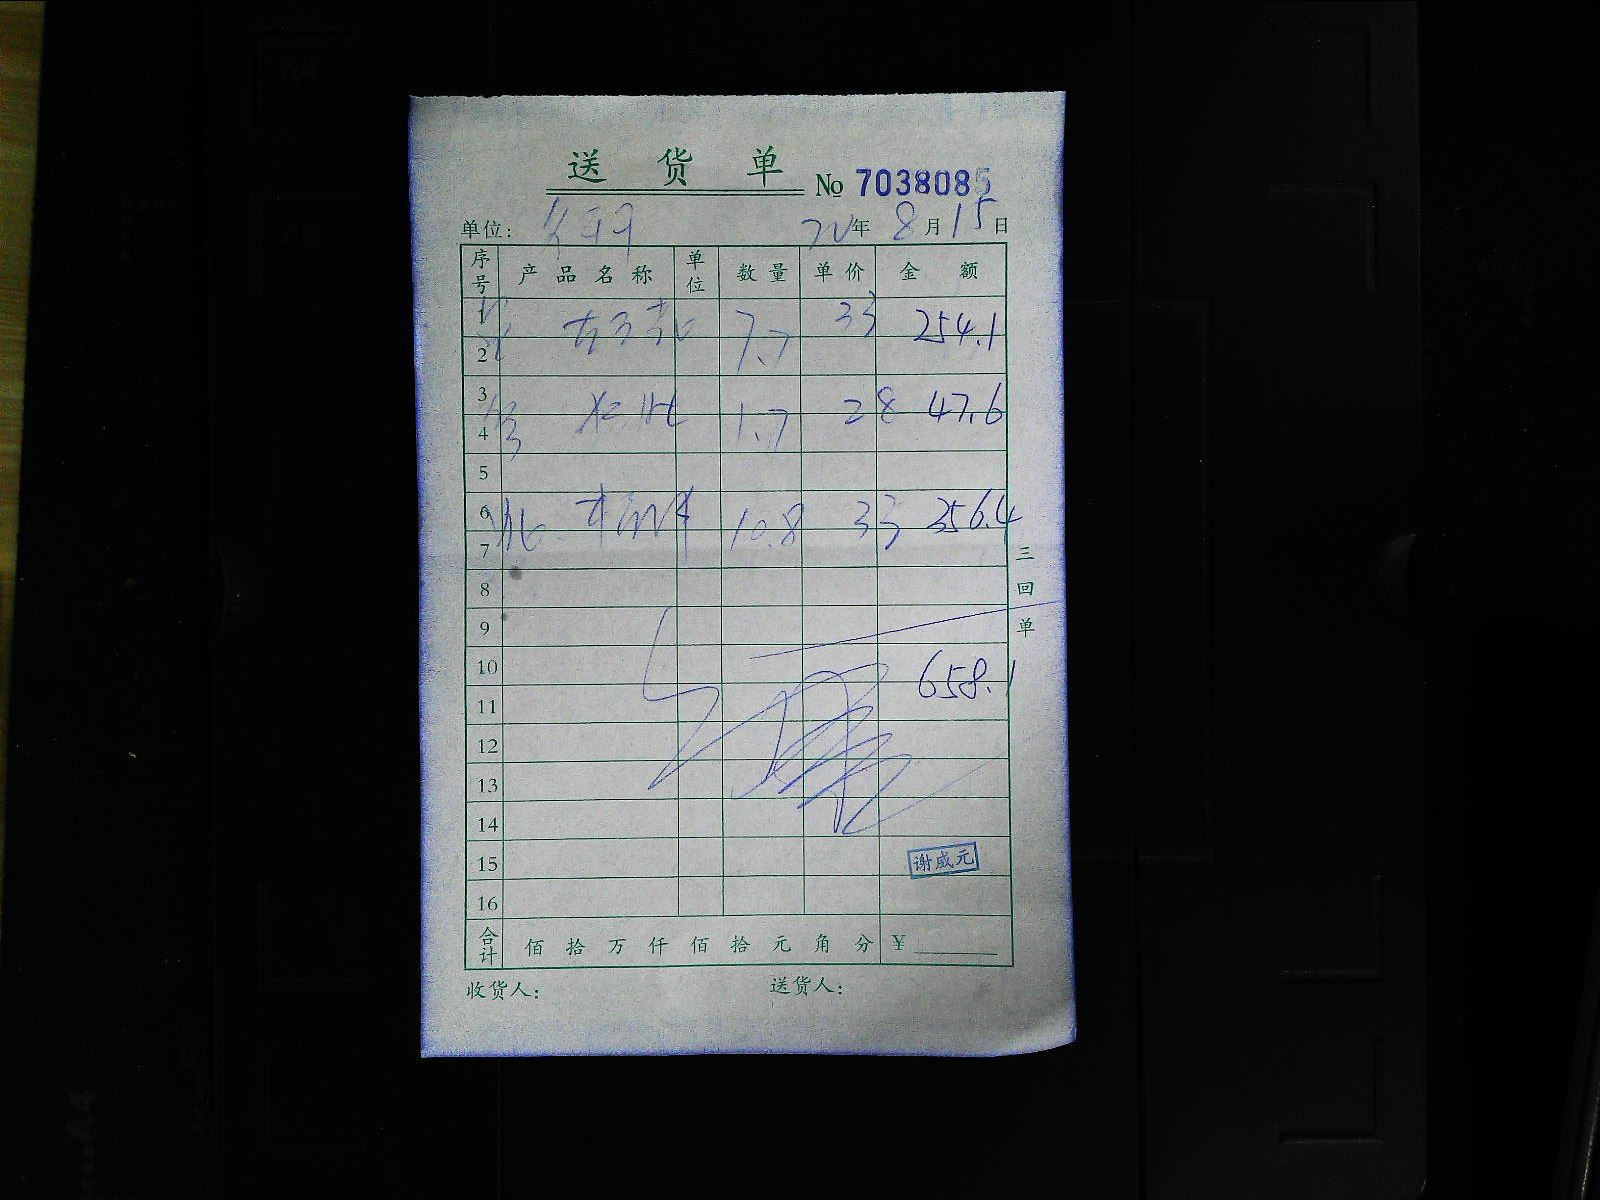 送货单 No 7038085
单位: 年 8 月 15 日
序号 产品名称 单位 数量 单价 金额
1 7.7 33 254.1
2
3 1.7 28 47.6
4
5
6 10.8 33 356.4
7
8
9
10 658.1
11
12
13
14
15 谢威元
16
合计 佰 拾 万 仟 佰 拾 元 角 分 ¥
收货人: 送货人:
三回单